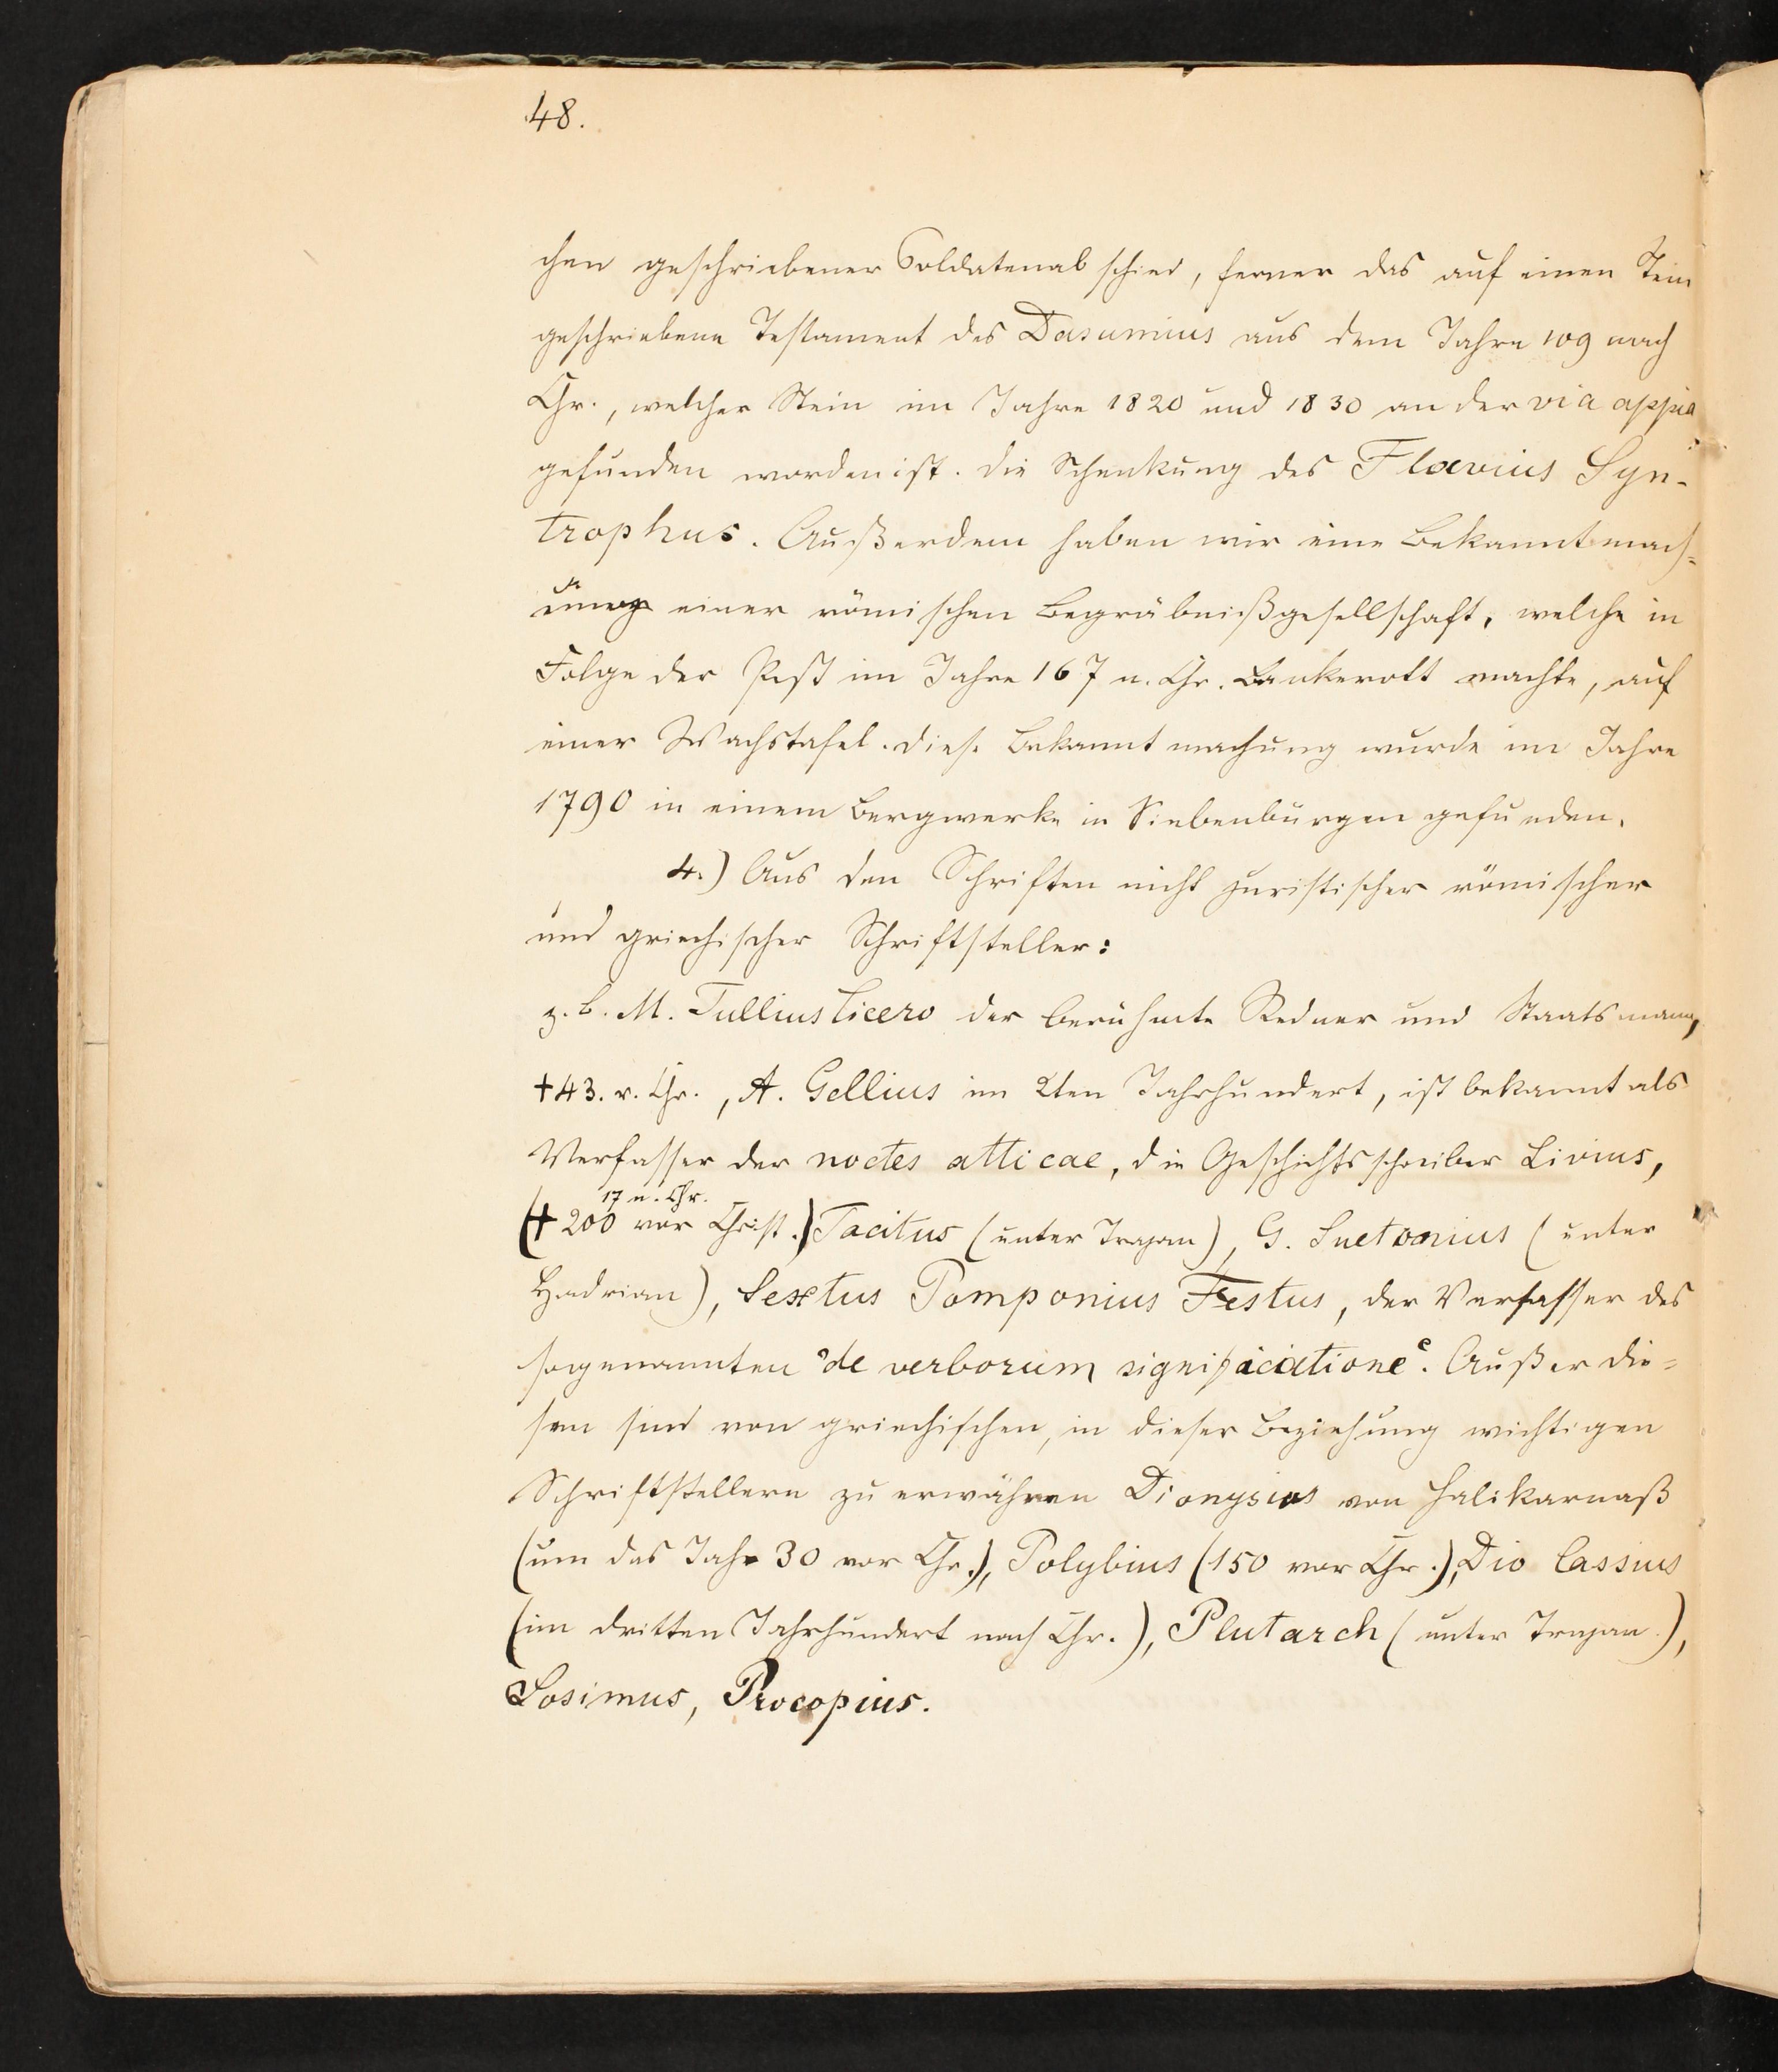 48.
chen geschriebener Soldatenabschied, ferner das auf einen Stein
geschriebene Testament des Dasumius aus dem Jahre 109 nach
Chr., welcher Stein im Jahre 1820 und 1830 an der via appia
gefunden worden ist. Die Schenkung des Flavius Syn-
trophus. Außerdem haben wir eine Bekanntmach=
ung einer römischen Begräbnißgesellschaft, welche in
Folge der Pest im Jahre 167 n. Chr. Bankerott machte, auf
einer Wachstafel. Diese Bekanntmachung wurde im Jahre
1790 in einem Bergwerke in Siebenburgen gefunden.
4.) Aus den Schriften nicht juristischer römischer
und griechischer Schriftsteller:
z. B. M. Tullius Cicero der berühmte Redner und Staatsmann,
+ 43. v. Chr., A. Gellius im 2ten Jahrhundert, ist bekannt als
Verfasser der noctes atticae, die Geschichtsschreiber Livius,
17 n. Chr.
(+ 200 vor Christ.) Tacitus (unter Trajan), G. Suetonius (unter
Hadrian), Sextus Pomponius Festus, der Verfasser des
sogenannten "de verborum significatione". Außer die=
sen sind von griechischen, in dieser Beziehung wichtigen
Schriftstellern zu erwähnen Dionysios von Halikarnaß
(um das Jahr 30 vor Chr.), Polybius (150 vor Chr.), Dio Cassius
(im dritten Jahrhundert nach Chr.), Plutarch (unter Trajan),
Zosimus, Procopius.